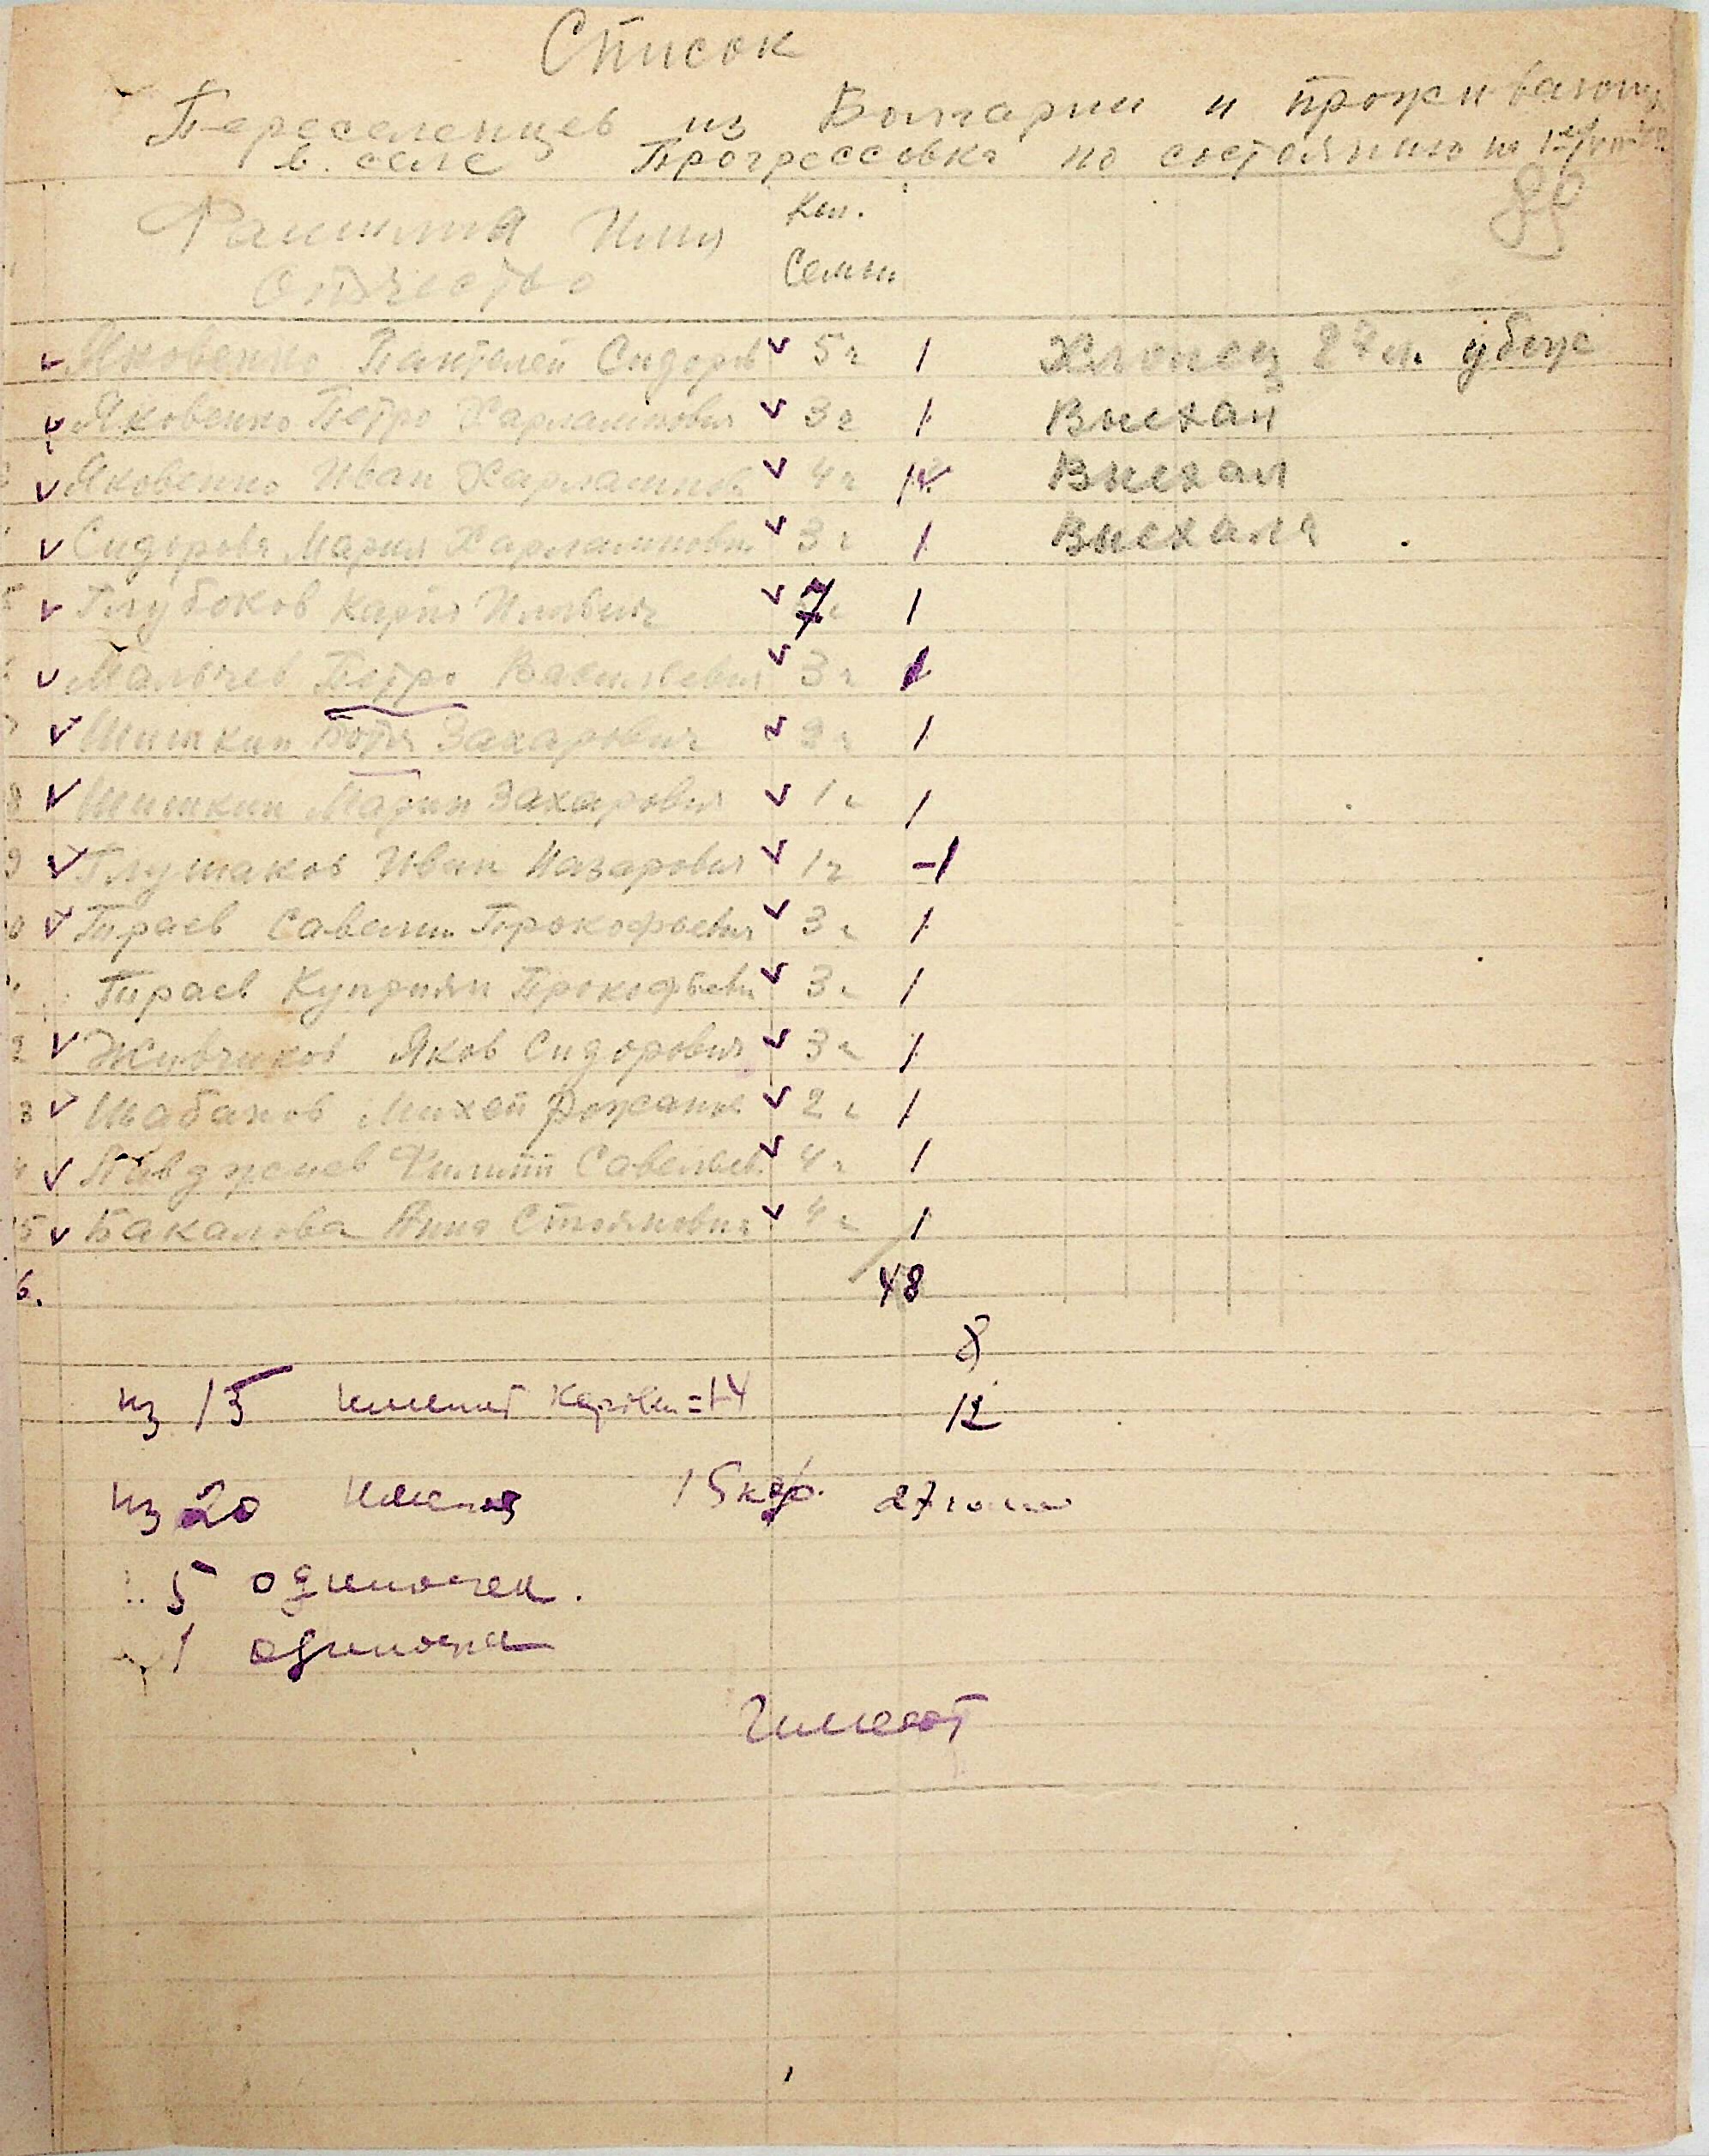 Список
Переселенцев из Болгарии и проживающ
в. селе Прогрессовка по состоянию на 1
88
Фамилия Имя Кол.
Отчество Семьи
Яковенко Пантелей Сидоров 5ч 1 Хлопец 27 л. убеж
Яковенко Петро Харлампович 3ч 1 Выехал
Яковенко Иван Харлампов 4ч 1 Выехал
Сидорова Мария Харлампови 3ч 1 Выехала
Глубоков Карпо Ильвич 7 1
Мальчев Петро Васильевич 3ч 1
7 Шишкин Захарович 2ч 1
8 Шишкин Марин Захарович 1ч 1
9 Глушаков Иван Назарович 1ч -1
0 Тираев Савелий Прокофьевич 3ч 1
Тираев Куприян Прокофьеви 3ч 1
2 Живчиков Яков Сидорович 3ч 1
3 Шабанов Михей 2ч 1
4 Филипп Савельев 4ч 1
5 Бакалова Анна Стоянович 4ч 1
6. 48
8
из 15 имеют коровы=14 12
из 20 имеют 15 кор. 27 голов
5 одиночек.
1 одиночка